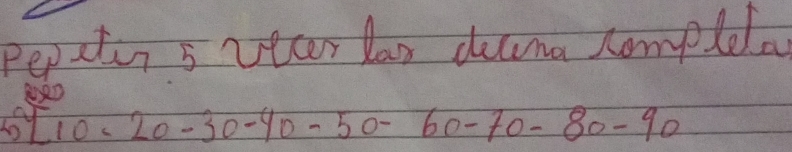 Pepetir 5 vecer las decena completas
10 - 20 - 30 - 40 - 50 - 60 - 70 - 80 - 90